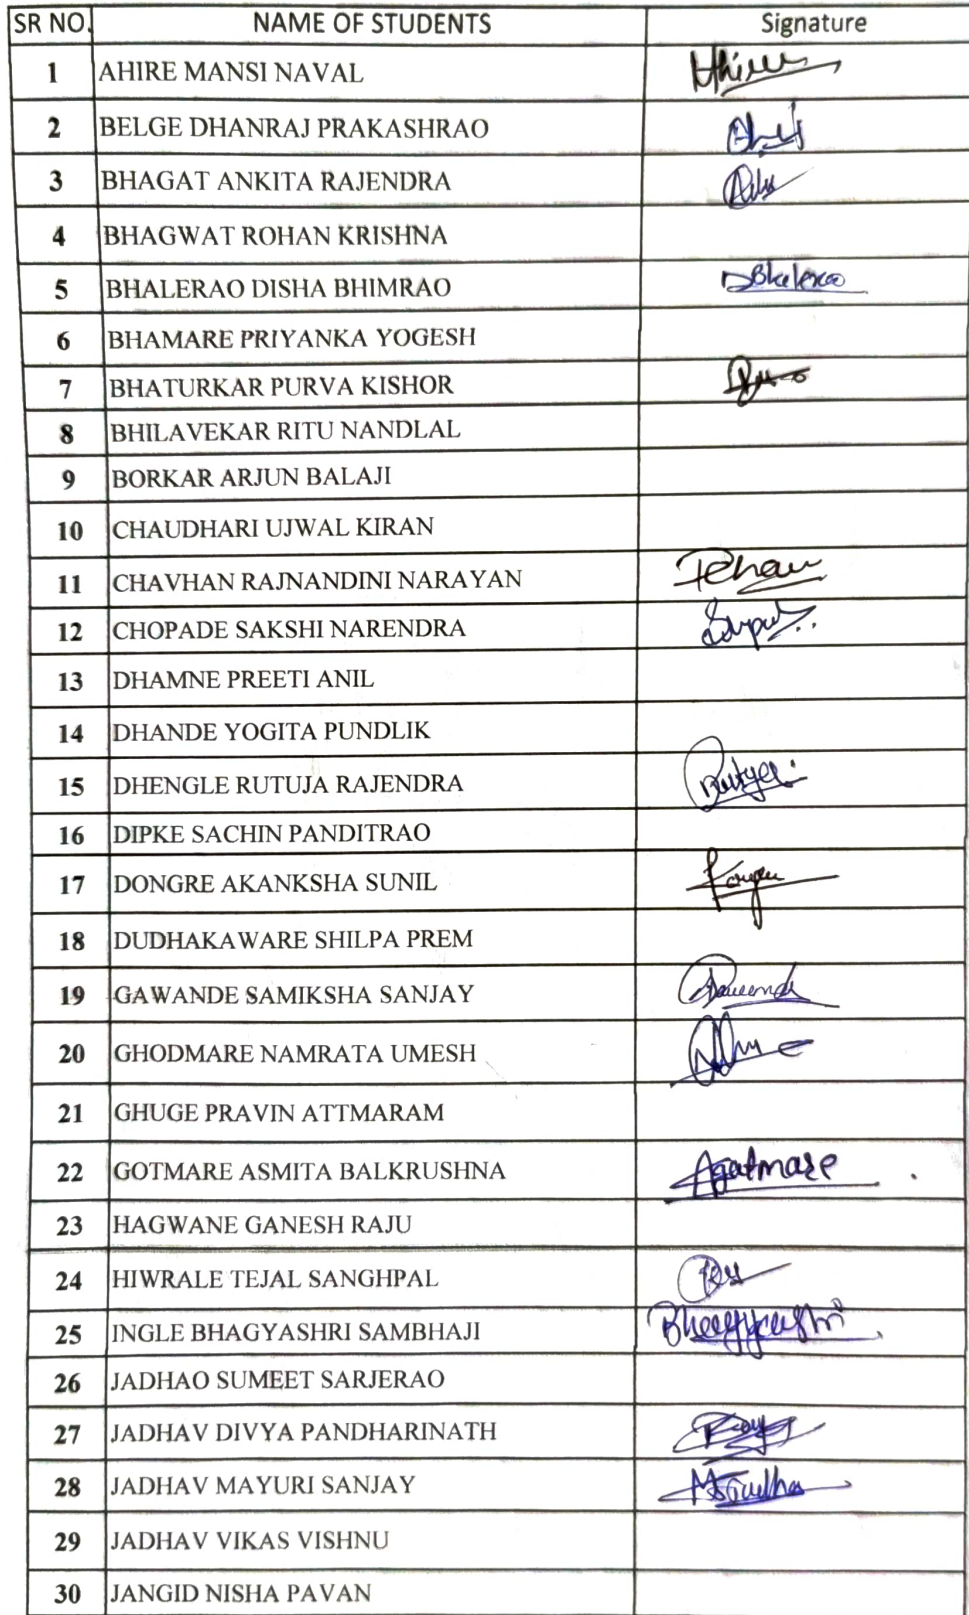 SR NO. NAME OF STUDENTS Signature
1 AHIRE MANSI NAVAL Ahire
2 BELGE DHANRAJ PRAKASHRAO
3 BHAGAT ANKITA RAJENDRA
4 BHAGWAT ROHAN KRISHNA
5 BHALERAO DISHA BHIMRAO DBhalerao
6 BHAMARE PRIYANKA YOGESH
7 BHATURKAR PURVA KISHOR
8 BHILAVEKAR RITU NANDLAL
9 BORKAR ARJUN BALAJI
10 CHAUDHARI UJWAL KIRAN
11 CHAVHAN RAJNANDINI NARAYAN
12 CHOPADE SAKSHI NARENDRA
13 DHAMNE PREETI ANIL
14 DHANDE YOGITA PUNDLIK
15 DHENGLE RUTUJA RAJENDRA
16 DIPKE SACHIN PANDITRAO
17 DONGRE AKANKSHA SUNIL
18 DUDHAKAWARE SHILPA PREM
19 GAWANDE SAMIKSHA SANJAY
20 GHODMARE NAMRATA UMESH
21 GHUGE PRAVIN ATTMARAM
22 GOTMARE ASMITA BALKRUSHNA Agatmare
23 HAGWANE GANESH RAJU
24 HIWRALE TEJAL SANGHPAL
25 INGLE BHAGYASHRI SAMBHAJI Bhagyashri
26 JADHAO SUMEET SARJERAO
27 JADHAV DIVYA PANDHARINATH
28 JADHAV MAYURI SANJAY
29 JADHAV VIKAS VISHNU
30 JANGID NISHA PAVAN